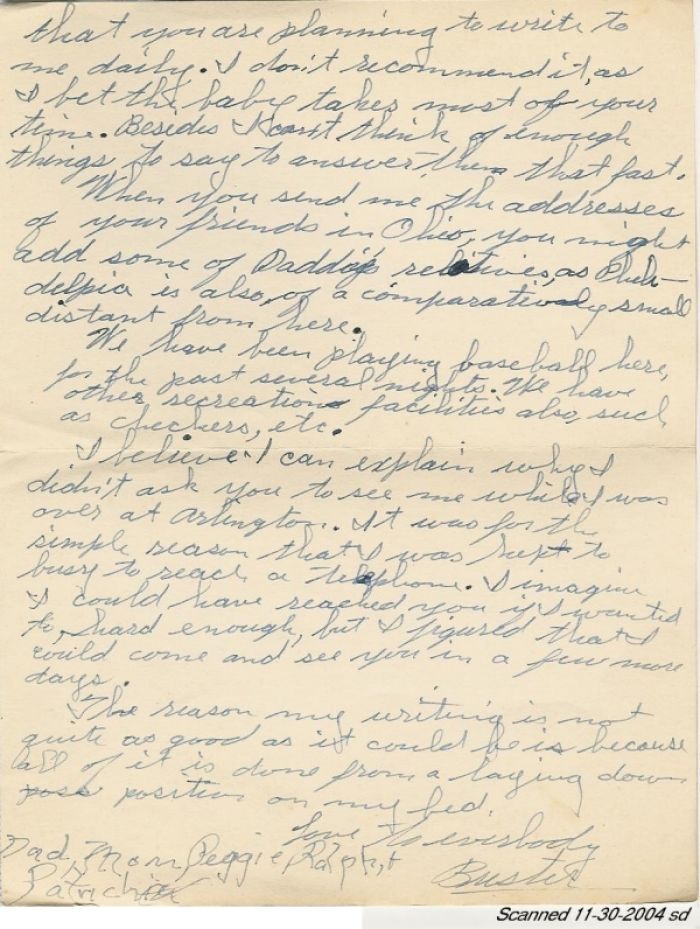 that you are planning to write to
me daily. I don't recommend it, as
I bet the baby takes most of your
time. Besides I can't think of enough
things to say to answer them that fast.
When you send me the addresses
of your friends in Ohio, you might
add some of Daddy's relatives, as Phila-
delpia is also, of a comparatively small
distant from here.
We have been playing baseball here,
for the past several nights. We have
other recreation facilities also, such
as checkers, etc.
I believe I can explain why I
didn't ask you to see me while I was
over at Arlington. It was for the
simple reason that I was kept to
busy to reach a telephone. I imagine
I could have reached you if I wanted
to, hard enough, but I figured that I
could come and see you in a few more
days.
The reason my writing is not
quite as good as it could be is because
all of it is done from a laying down
poss position on my bed.
love to everbody
Buster
Dad, Mom, Peggie, Ralph, +
Scanned 11-30-2004 sd